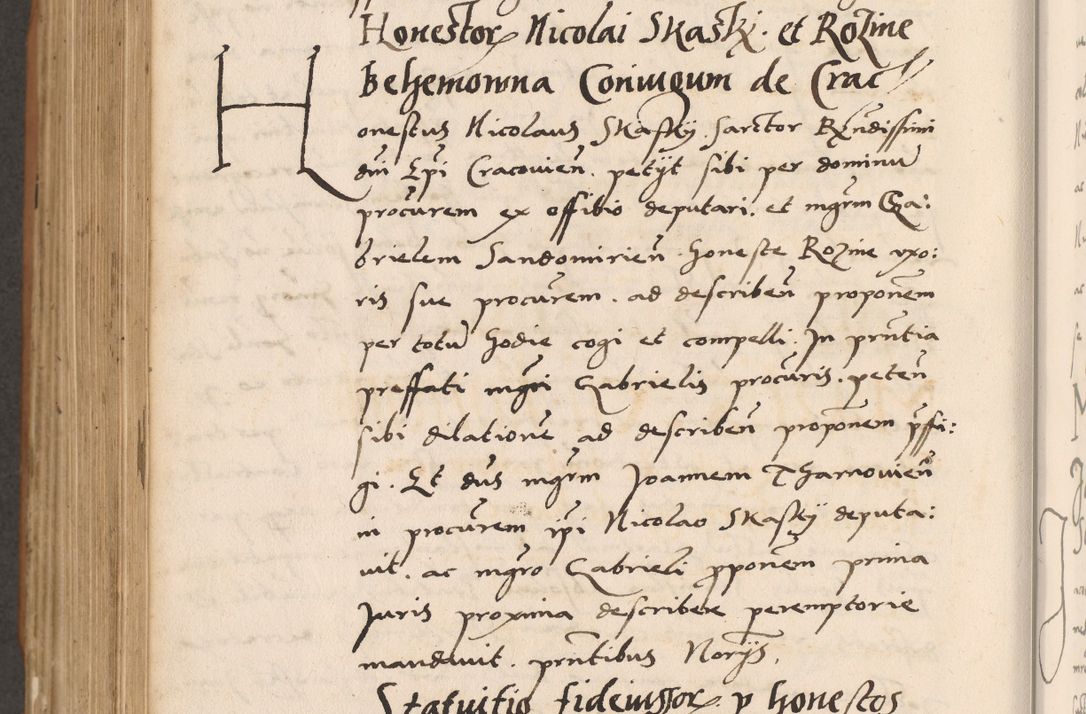 Honestor Nicolai Skaski. et Rozine
Behemowna Coniugum de Crac
Honestus Nicolaus Skasky. sartor Rndissimi
dni Epi Cracouien. petijt sibi per dominu
procurem ex officio deputari. et mgrm Ga:
brielem Sandomirien. honeste Rozine vxo:
ris sue procurem. ad describen proponem
per totu hodie cogi et compelli. In prntia
preffati mgri Gabrielis procuris. peten
sibi dilatione ad describen proponem pfi:
gi. Et dns mgrm Joannem Tharnouien
in procurem ipi Nicolao Skasky deputa:
uit. ac mgro Gabrieli proponem prima
Juris proxima describere peremptorie
mandauit. prntibus Norijs.
Statuitio fideiussor p honestos